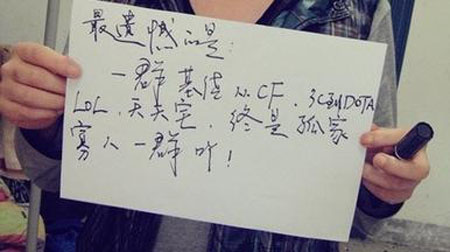 最遗憾的是:
一群基佬从CF、3C到DOTA
LOL,天天宅,终是孤家
寡人一群吖!